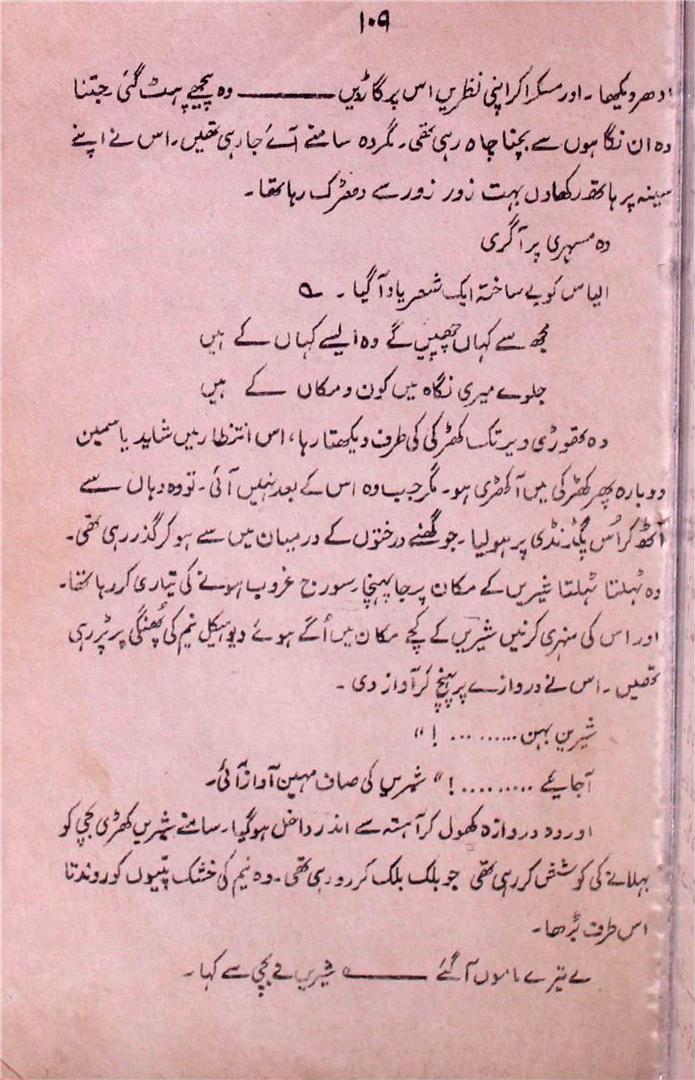 ۱۰۹
ادھر دیکھا۔ اور مسکرا کر اپنی نظریں اس پر گاڑ دیں ——— وہ پیچھے ہٹ گئی جتنا
وہ ان نگاہوں سے بچنا چاہ رہی تھی۔ مگر وہ سامنے آئے جا رہی تھیں۔ اس نے اپنے
سینہ پر ہاتھ رکھا دل بہت زور زور سے دھڑک رہا تھا۔
وہ مسہری پر آ گری
الیاس کو بے ساختہ ایک شعر یاد آ گیا۔ ؎
مجھ سے کہاں چھپیں گے وہ ایسے کہاں کے ہیں
جلوے میری نگاہ میں کون و مکاں کے ہیں
وہ تھوڑی دیر تک کھڑکی کی طرف دیکھتا رہا، اس انتظار میں شاید یاسمین
دوبارہ پھر کھڑکی میں آ کھڑی ہو۔ مگر جب وہ اس کے بعد نہیں آئی۔ تو وہ وہاں سے
اُٹھ کر اُس پگڈنڈی پر ہو لیا۔ جو گھنے درختوں کے درمیان میں سے ہو کر گذر رہی تھی۔
وہ ٹہلتا ٹہلتا شیریں کے مکان پر جا پہنچا۔ سورج غروب ہونے کی تیاری کر رہا تھا۔
اور اس کی سنہری کرنیں شیریں کے کچے مکان میں اُگے ہوئے دیو ہیکل نیم کی پُھنگی پر پڑ رہی
تھیں۔ اس نے دروازے پر پہنچ کر آواز دی۔
شیریں بہن ......... !"
آجایئے ......... !" شیریں کی صاف مہین آواز آئی۔
اور وہ دروازہ کھول کر آہستہ سے اندر داخل ہو گیا۔ سامنے شیریں کھڑی بچی کو
بہلانے کی کوشش کر رہی تھی جو بلک بلک کر رو رہی تھی۔ وہ نیم کی خشک پتیوں کو روندتا
اس طرف بڑھا۔
لے تیرے ماموں آ گئے ——— شیریں نے بچی سے کہا۔